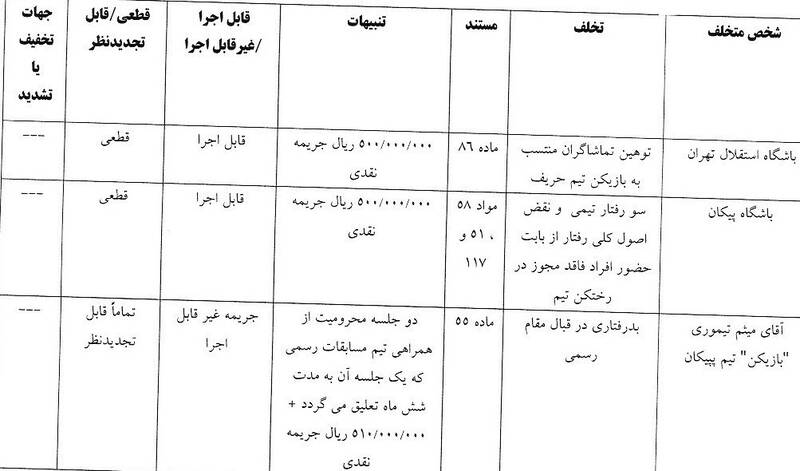 شخص متخلف
تخلف
مستند
تنبیهات
قابل اجرا
/غیرقابل اجرا
قطعی/قابل
تجدیدنظر
جهات
تخفیف
یا
تشدید
باشگاه استقلال تهران
توهین تماشاگران منتسب
به بازیکن تیم حریف
ماده ۸۶
۵۰۰/۰۰۰/۰۰۰ ریال جریمه
نقدی
قابل اجرا
قطعی
---
باشگاه پیکان
سو رفتار تیمی و نقض
اصول کلی رفتار از بابت
حضور افراد فاقد مجوز در
رختکن تیم
مواد ۵۸
، ۵۱ و
۱۱۷
۵۰۰/۰۰۰/۰۰۰ ریال جریمه
نقدی
قابل اجرا
قطعی
---
آقای میثم تیموری
"بازیکن" تیم پیکان
بدرفتاری در قبال مقام
رسمی
ماده ۵۵
دو جلسه محرومیت از
همراهی تیم مسابقات رسمی
که یک جلسه آن به مدت
شش ماه تعلیق می گردد +
۵۱۰/۰۰۰/۰۰۰ ریال جریمه
نقدی
جریمه غیر قابل
اجرا
تماماً قابل
تجدیدنظر
---